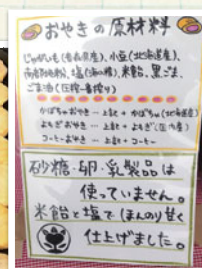 おやきの原材料
じゃがいも(青森県産)、小豆(北海道産)、
塩(海の精)、米飴、黒ごま、
ごま油(圧搾一番搾り)
かぼちゃおやき … 上記 + かぼちゃ(北海道産)
よもぎおやき … 上記 + よもぎ(国内産)
コーヒーおやき … 上記 + コーヒー
砂糖・卵・乳製品は
使っていません。
米飴と塩でほんのり甘く
仕上げました。